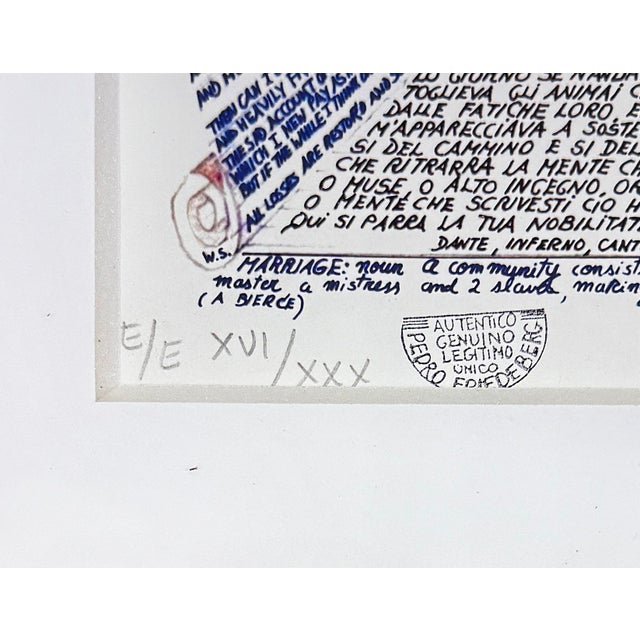 AND H
THEN CAN I
AND HEAVILY FR
THE SAD ACCOUNT OF
WHICH I NEW PAY AS I
BUT IF THE WHILE I THINK O
ALL LOSSES ARE RESTOR'D AND S
W.S.
LO GIORNO SE N'ANDA
TOGLIEVA GLI ANIMAI C
DALLE FATICHE LORO, E
M'APPARECCIAVA A SOSTE
SI DEL CAMMINO E SI DEL
CHE RITRARRA LA MENTE CH
O MUSE, O ALTO INGEGNO, OR
O MENTE CHE SCRIVESTI CIO H
QUI SI PARRA LA TUA NOBILITAT
DANTE, INFERNO, CANT
MARRIAGE: noun a community consist
master a mistress and 2 slaves, making
(A BIERCE)
E/E XVI/XXX
AUTENTICO
GENUINO
LEGITIMO
UNICO
PEDRO FRIEDEBERG